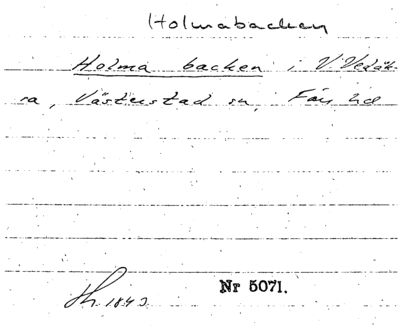 Holmabacken
Holma backen i V. Vedåk-
ra, Västerstad sn, Färs hd
Nr 5071.